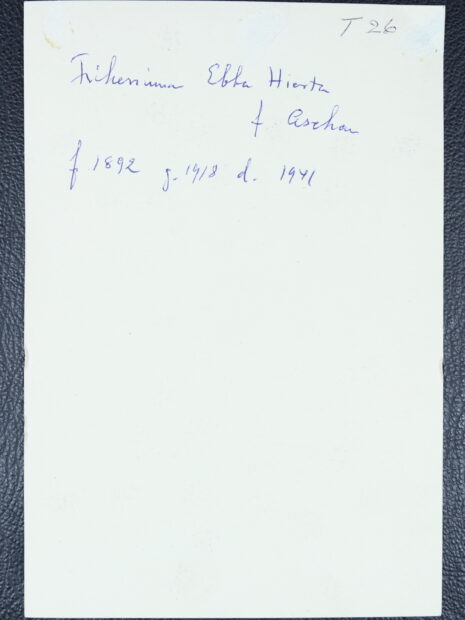 T 26
Friherrinnan Ebba Hierta
f Aschan
f 1892 g. 1918 d. 1941